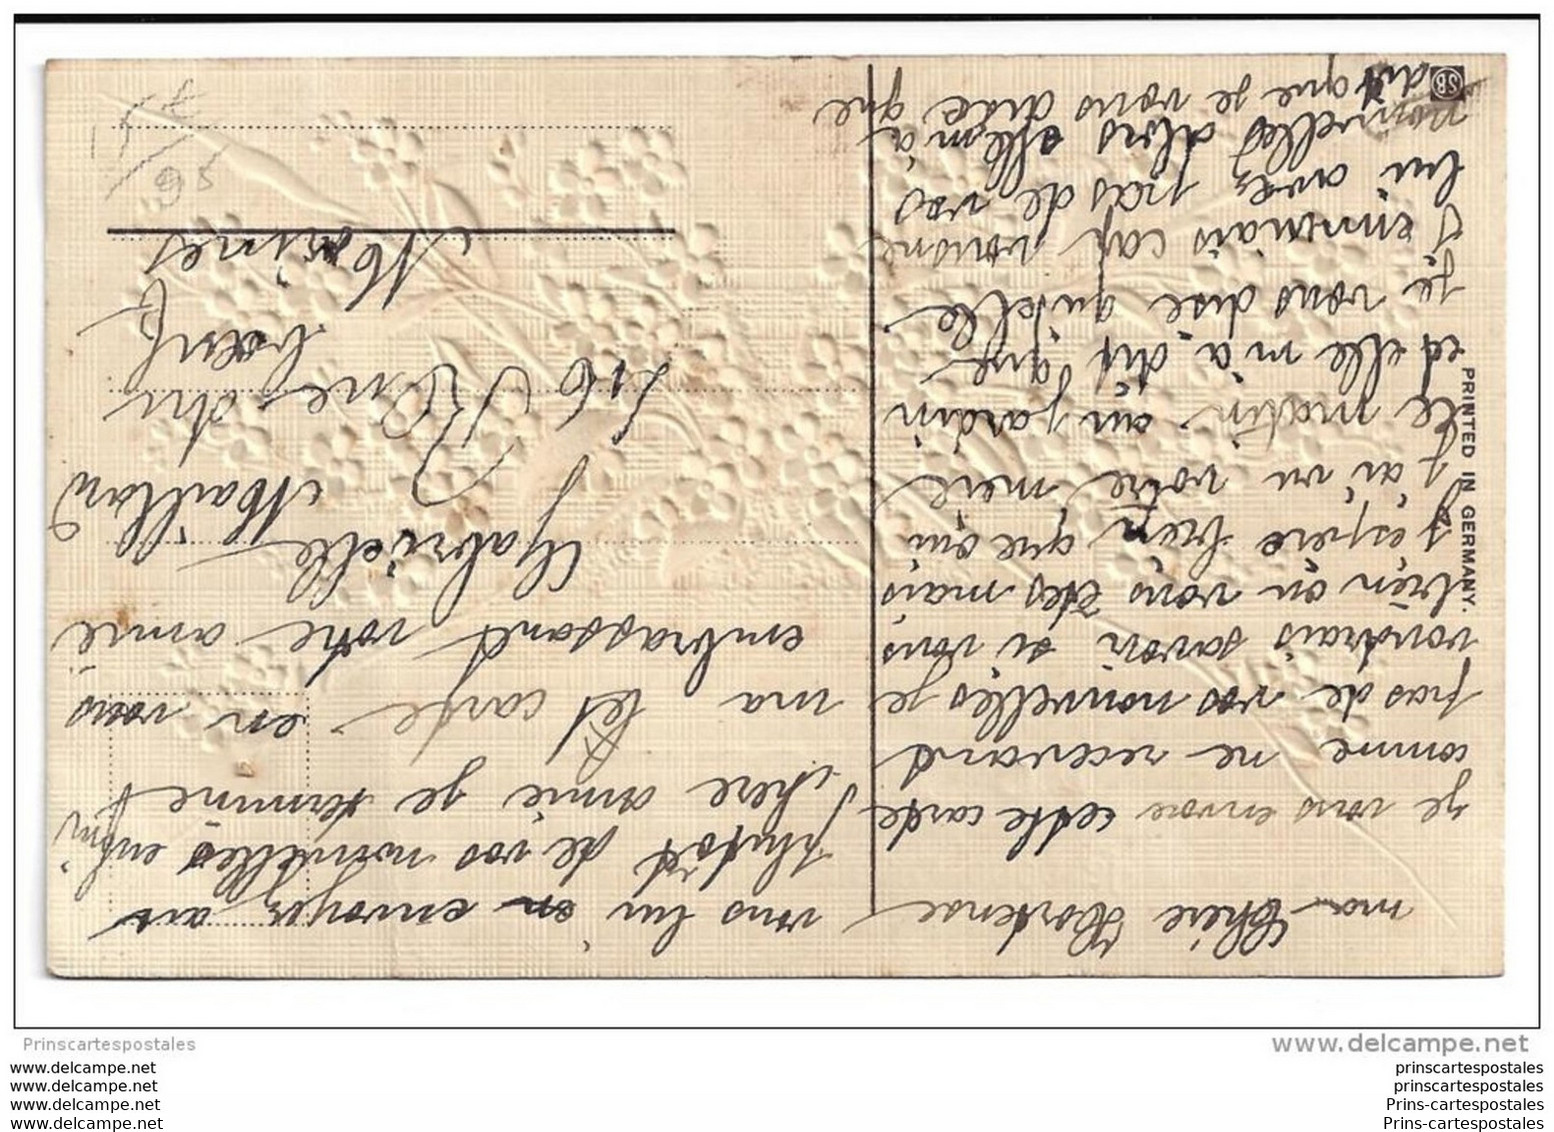 ma Chère Hortense
je vous envoie cette carte
comme ne recevant
pas de vos nouvelles je
voudrais savoir si vous
bien on vous êtes mais
j'espère bien que oui
J'ai vu votre mère
le matin au jardin
et elle m'a dit que
je vous dise qu'elle
s'ennuiais car vous ne
lui avez pas de vos
nouvelles alors elle m'a
dit que je vous dise que
vous lui en envoyez
plutôt de vos nouvelles enfin
chère amie je termine
ma carte en vous
embrassant votre amie
Gabrielle Maillard
116 Rue du
boeuf
7
95
SB
PRINTED IN GERMANY.
Prinscartespostales
www.delcampe.net
www.delcampe.net
www.delcampe.net
www.delcampe.net
www.delcampe.net
prinscartespostales
prinscartespostales
Prins-cartespostales
Prins-cartespostales